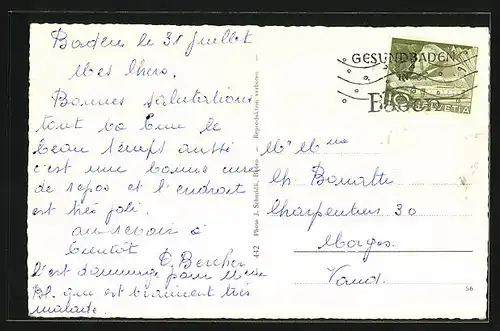 Baden le 31 juillet
Mes chers.
Bonnes salutations
tout va bien le
beau temps aussi
c'est une bonne cure
de repos et l'endroit
est très joli.
au revoir à
bientôt
C'est dommage pour
Bl. qui est vraiment très
malade.
442 Photo J. Schmidli, Reproduktion verboten
GESUNDBADEN
IN
HELVETIA
Mr Mme
Ch
Charpentiers 30
Morges.
Vaud.
56